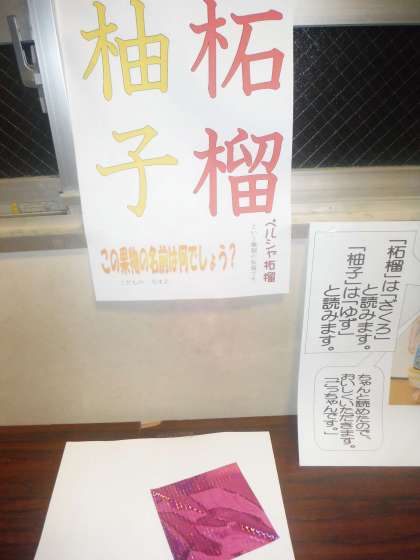 柘榴
柚子
ペルシャ柘榴
この果物の名前は何でしょう？
くだもの　なまえ
「柘榴」は「ざくろ」
と読みます。
「柚子」は「ゆず」
と読みます。
ちゃんと読めたので、
おいしくいただきます。
「ごっちゃんです。」